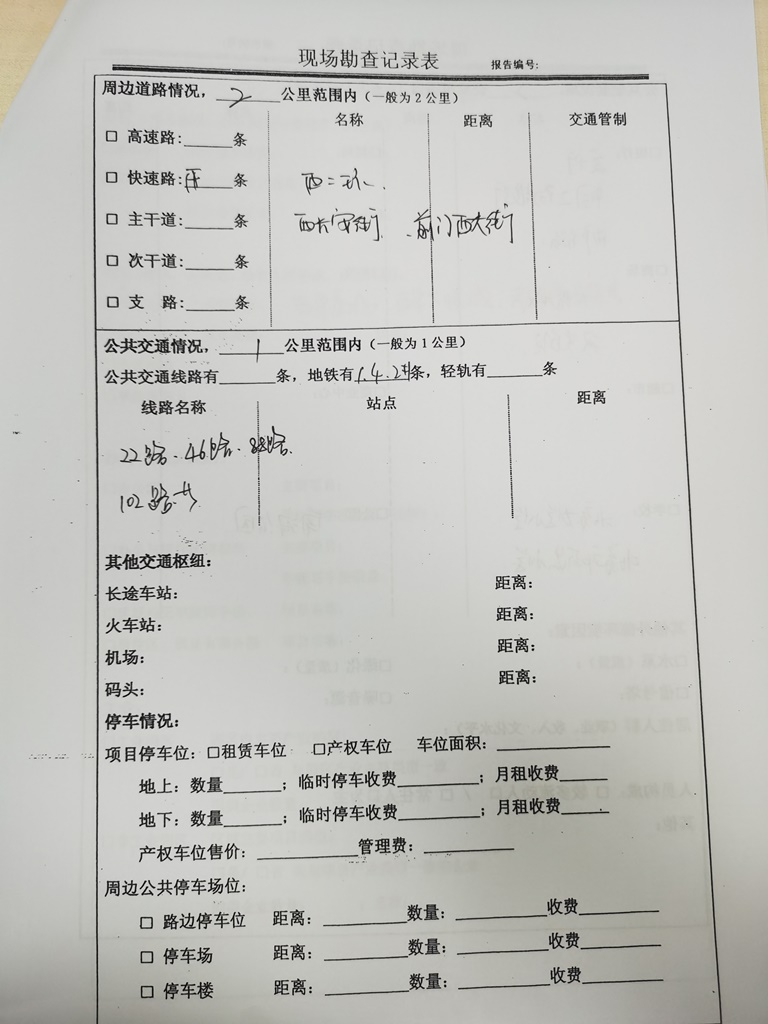 现场勘查记录表 报告编号:
周边道路情况，2公里范围内（一般为2公里）
名称 距离 交通管制
□ 高速路:______条
□ 快速路:______条 西二环、
□ 主干道:______条 西长安街 、前门西大街
□ 次干道:______条
□ 支 路:______条
公共交通情况，1公里范围内（一般为1公里）
公共交通线路有______条，地铁有1.4.2号条，轻轨有______条
线路名称 站点 距离
22路、46路、88路、
102路
其他交通枢纽：
长途车站： 距离：
火车站： 距离：
机场： 距离：
码头： 距离：
停车情况：
项目停车位：□租赁车位 □产权车位 车位面积：____________
地上：数量______；临时停车收费________；月租收费_____
地下：数量______；临时停车收费________；月租收费_____
产权车位售价：__________管理费：__________
周边公共停车场位：
□ 路边停车位 距离：________数量：________收费________
□ 停车场 距离：________数量：________收费________
□ 停车楼 距离：________数量：________收费________